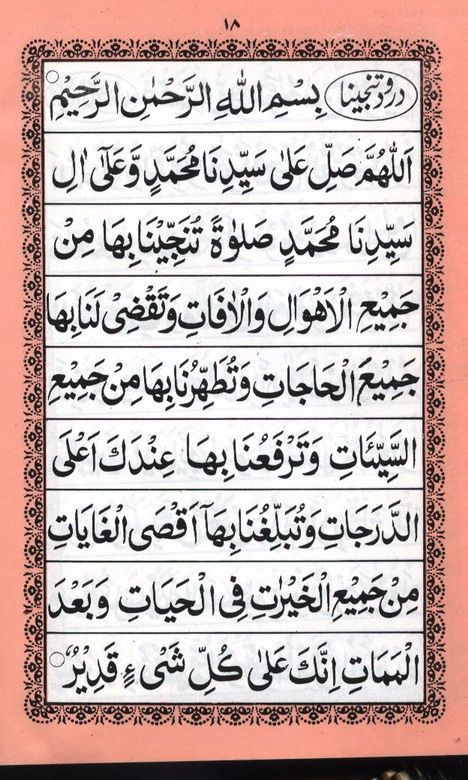 ۱۸
درود تنجینا بِسْمِ اللهِ الرَّحْمٰنِ الرَّحِيْمِ
اَللّٰهُمَّ صَلِّ عَلٰى سَيِّدِنَا مُحَمَّدٍ وَّعَلٰٓى اٰلِ
سَيِّدِنَا مُحَمَّدٍ صَلٰوةً تُنَجِّيْنَا بِهَا مِنْ
جَمِيْعِ الْاَهْوَالِ وَالْاٰفَاتِ وَتَقْضِىْ لَنَا بِهَا
جَمِيْعَ الْحَاجَاتِ وَتُطَهِّرُنَا بِهَا مِنْ جَمِيْعِ
السَّيِّئَاتِ وَتَرْفَعُنَا بِهَا عِنْدَكَ اَعْلَى
الدَّرَجَاتِ وَتُبَلِّغُنَا بِهَآ اَقْصَى الْغَايَاتِ
مِنْ جَمِيْعِ الْخَيْرٰتِ فِى الْحَيَاتِ وَبَعْدَ
الْمَمَاتِ اِنَّكَ عَلٰى كُلِّ شَىْءٍ قَدِيْرٌ